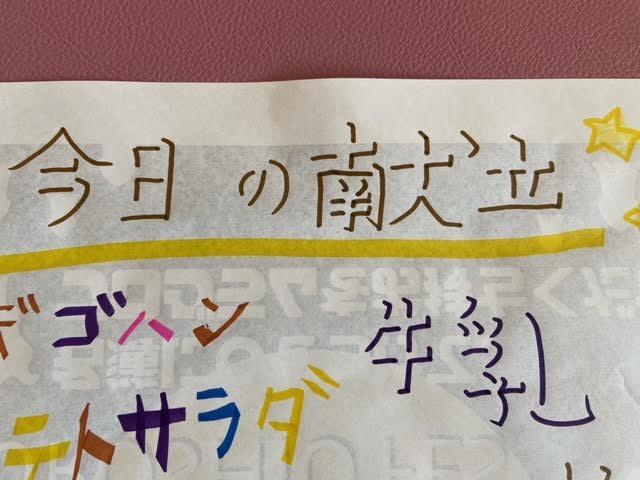 今日の献立
ゴハン 牛乳
テトサラダ